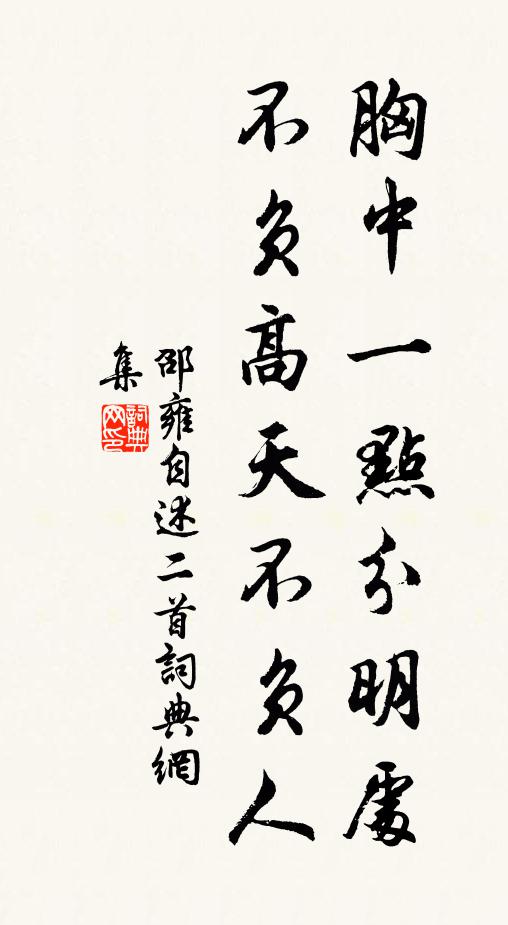 胸中一點分明處
不負高天不負人
邵雍自述二首詞典網
集
詞典網印